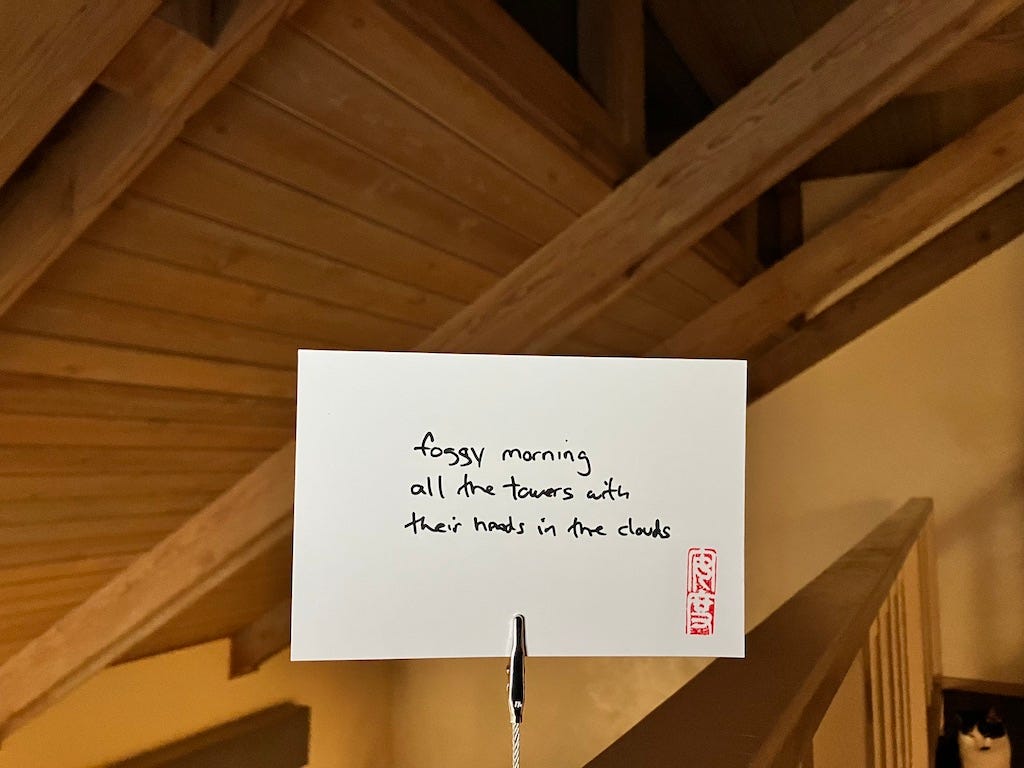 foggy morning
all the towers with
their heads in the clouds